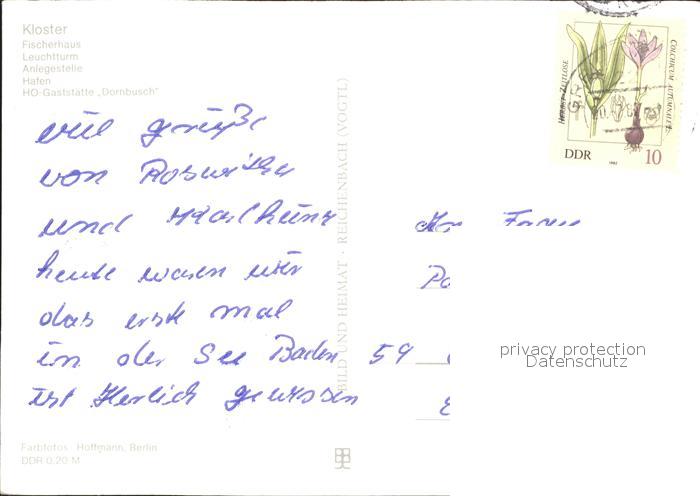 Kloster
Fischerhaus
Leuchtturm
Anlegestelle
Hafen
HO-Gaststätte „Dornbusch"
viel grüße
von Roswitha
und Karlheinz
heute waren wir
das erste mal
in der See Baden 59
ist Herlich gewesen
BILD UND HEIMAT · REICHENBACH (VOGTL)
HERBST-ZEITLOSE
COLCHICUM AUTUMNALE L.
DDR 10
1982
privacy protection
Datenschutz
Farbfotos: Hoffmann, Berlin
DDR 0,20 M